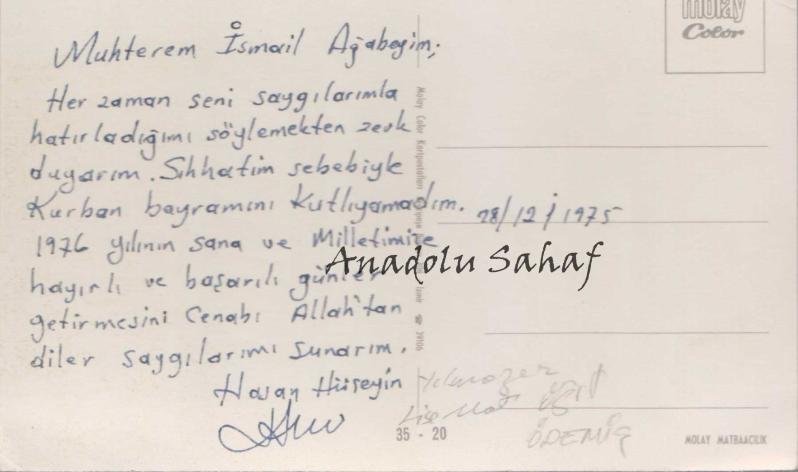 molay
Color
Muhterem İsmail Ağabeyim;
Her zaman seni saygılarımla
hatırladığımı söylemekten zevk
duyarım. Sıhhatim sebebiyle
Kurban bayramını kutlıyamadım.
28/12/1975
1976 yılının sana ve Milletimize
hayırlı ve başarılı günler
getirmesini Cenabı Allah'tan
diler saygılarımı sunarım.
Hasan Hüseyin
Yılmazer
Lise Mat
ÖDEMİŞ
Anadolu Sahaf
Molay Color Kartpostalları
İzmir ☎ 39106
35 - 20
MOLAY MATBAACILIK